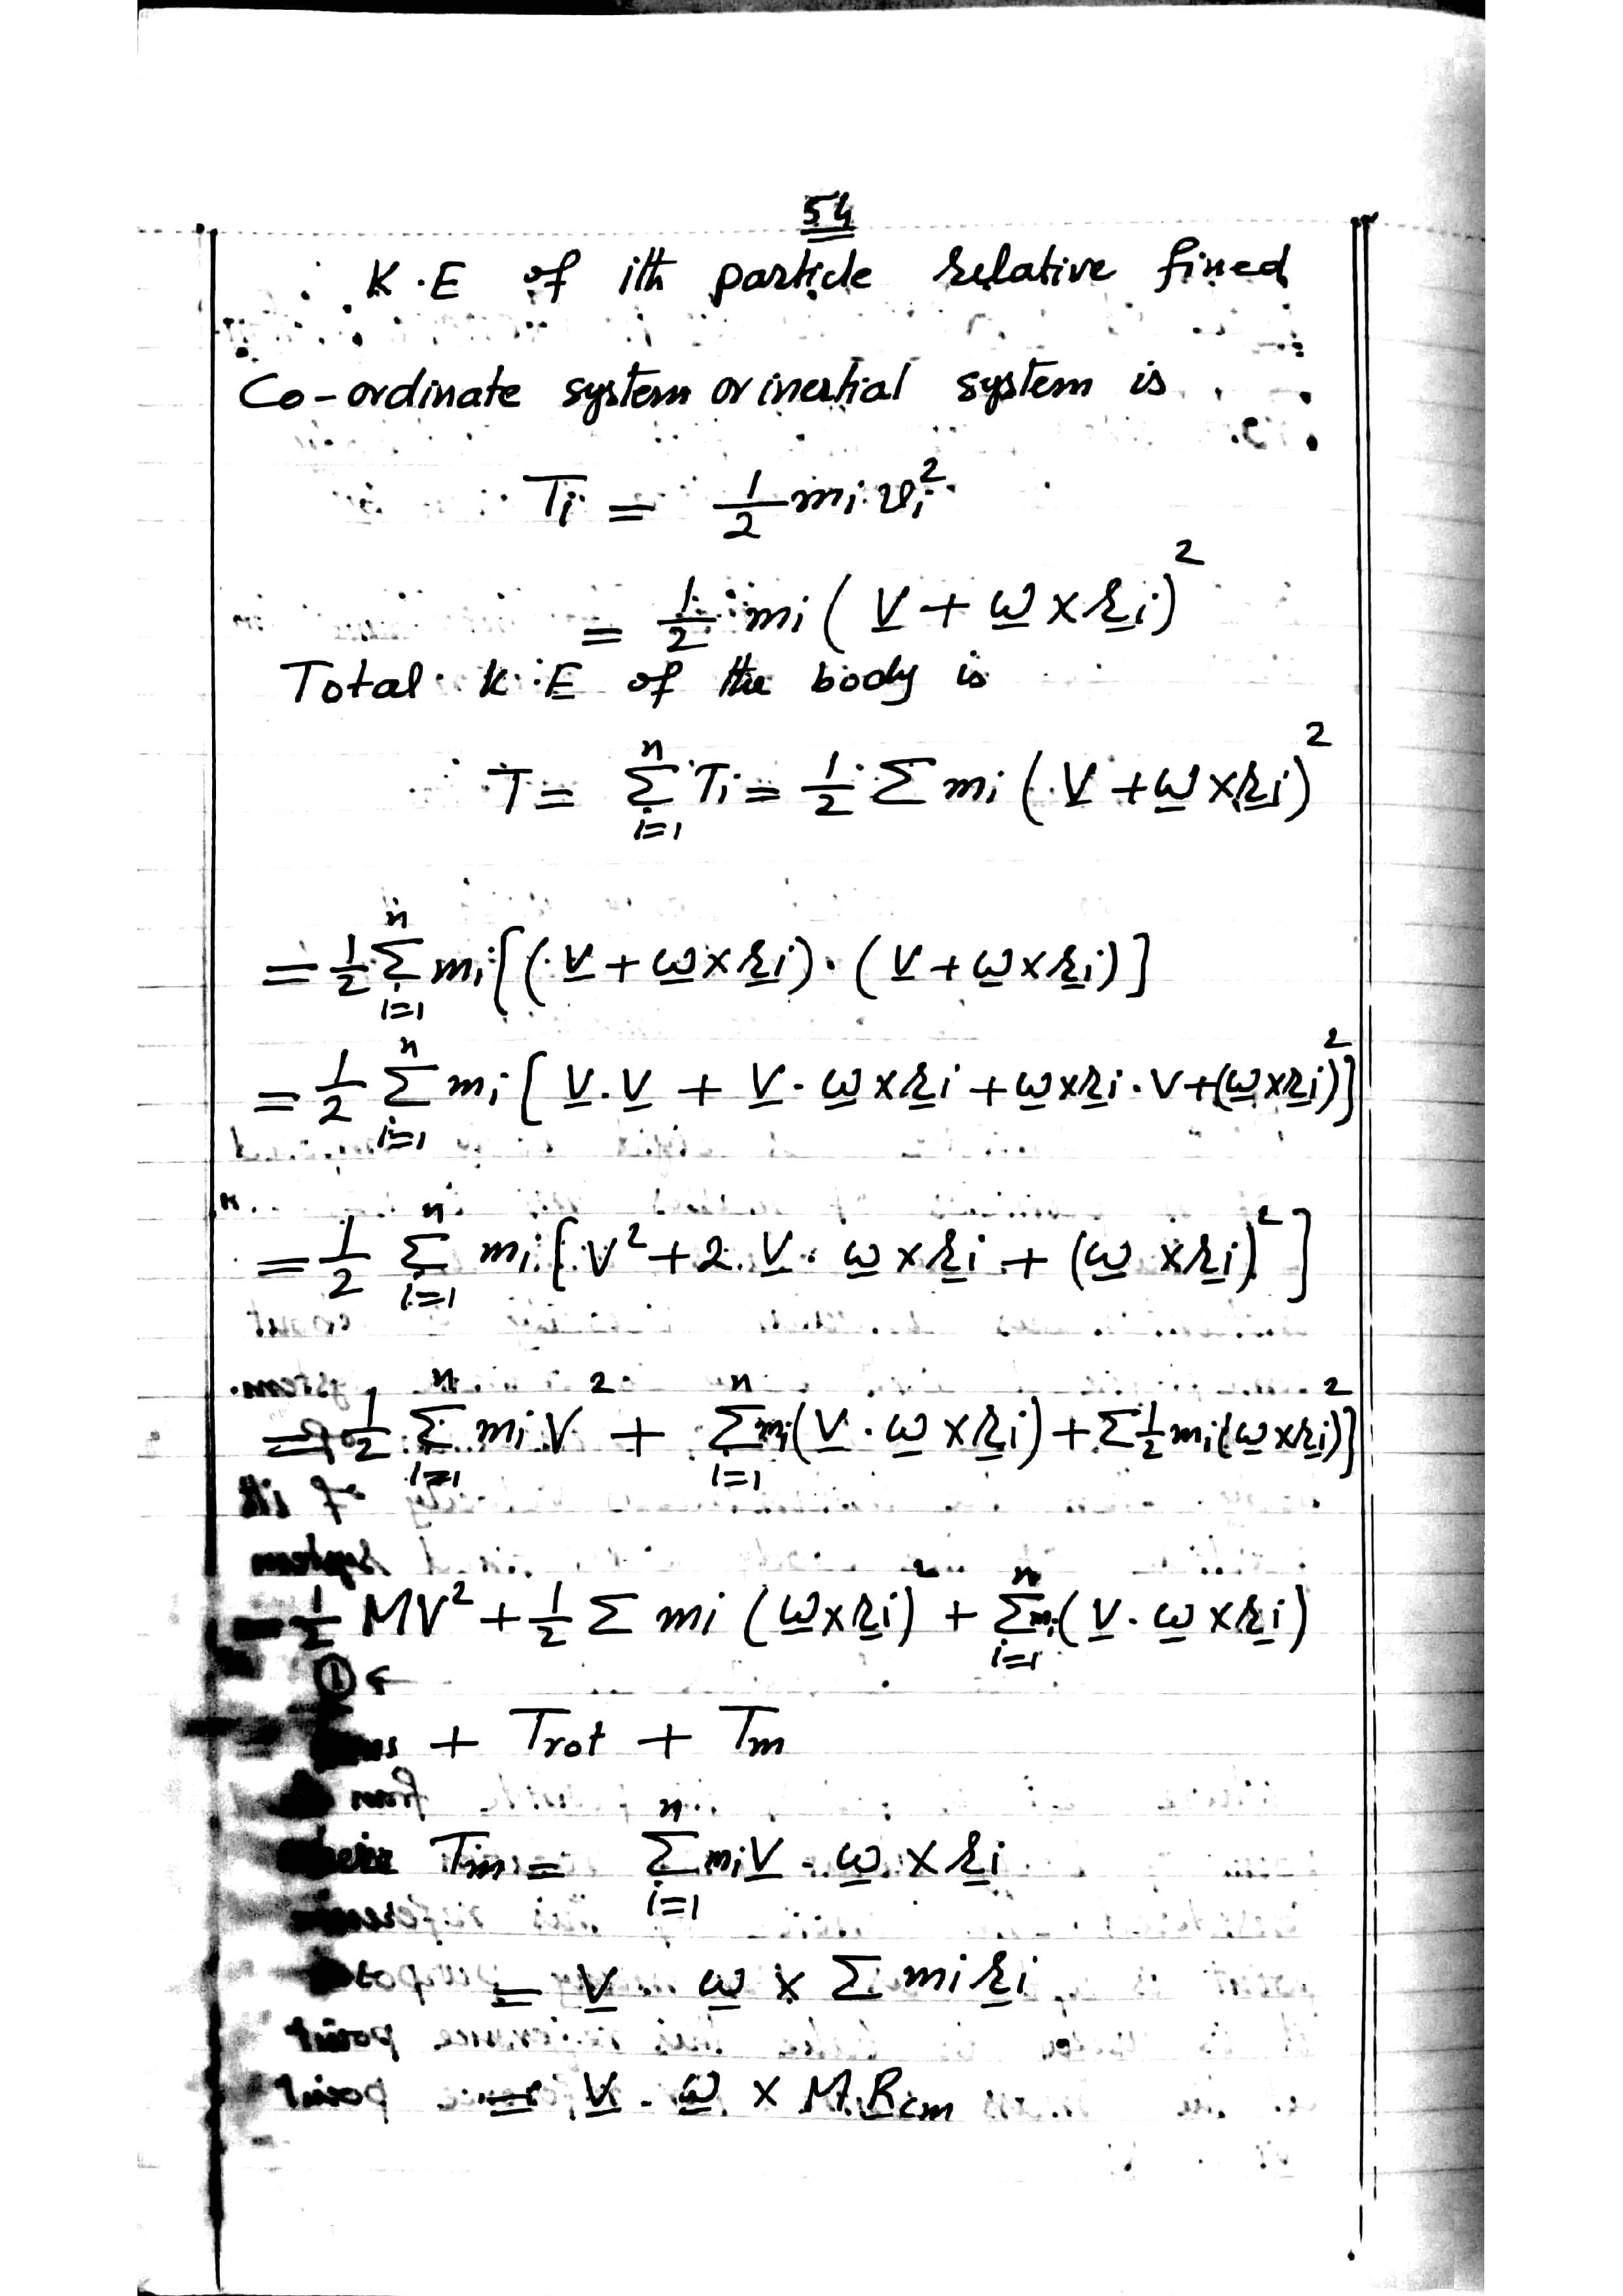 54
K.E of ith particle relative fixed
Co-ordinate system or inertial system is
Ti = 1/2 mi vi²
= 1/2 mi ( V + ω × ri )²
Total K.E of the body is
T = Σ(i=1 to n) Ti = 1/2 Σ mi ( V + ω × ri )²
= 1/2 Σ(i=1 to n) mi [ ( V + ω × ri ) . ( V + ω × ri ) ]
= 1/2 Σ(i=1 to n) mi [ V . V + V . ω × ri + ω × ri . V + (ω × ri)² ]
= 1/2 Σ(i=1 to n) mi [ V² + 2 . V . ω × ri + (ω × ri)² ]
= 1/2 Σ(i=1 to n) mi V² + Σ(i=1 to n) mi ( V . ω × ri ) + Σ 1/2 mi (ω × ri)² ]
= 1/2 MV² + 1/2 Σ mi (ω × ri)² + Σ(i=1 to n) mi ( V . ω × ri )
① ←
+ Trot + Tm
Tm = Σ(i=1 to n) mi V . ω × ri
= V . ω × Σ mi ri
= V . ω × M Rcm